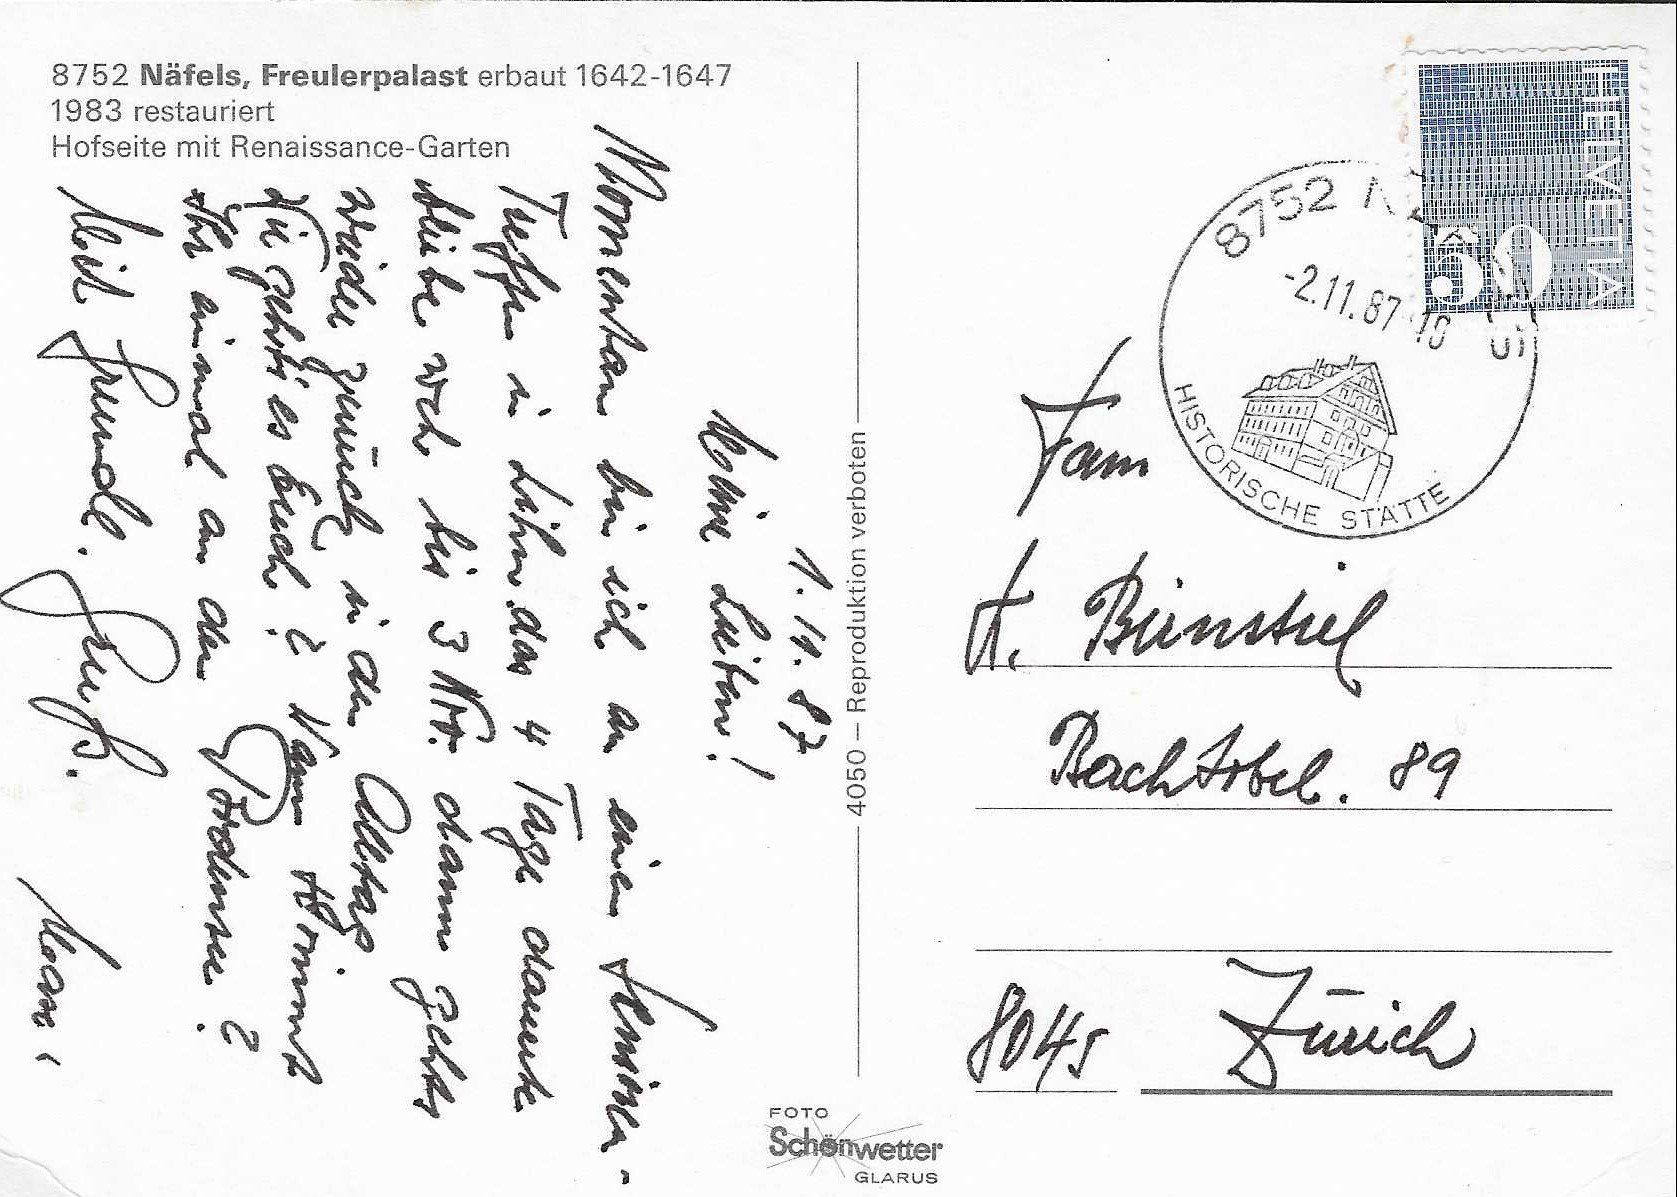 8752 Näfels, Freulerpalast erbaut 1642-1647
1983 restauriert
Hofseite mit Renaissance-Garten
1.11.87
Meine Lieben!
Momentan bin ich an einem Senioren-
Treffen in Lihn das 4 Tage dauerte
bleibe noch bis 3 Nov. dann gehts
wieder zurück in den Alltag
Wie gehts es Euch? Wann kommt
Ihr einmal an den Bodensee?
Mit freundl. Gruß.
4050 – Reproduktion verboten
FOTO
Schönwetter
GLARUS
HELVETIA
50
8752 NÄFELS
-2.11.87
HISTORISCHE STÄTTE
Fam
Bünstiel
Bachtobel. 89
8045 Zürich